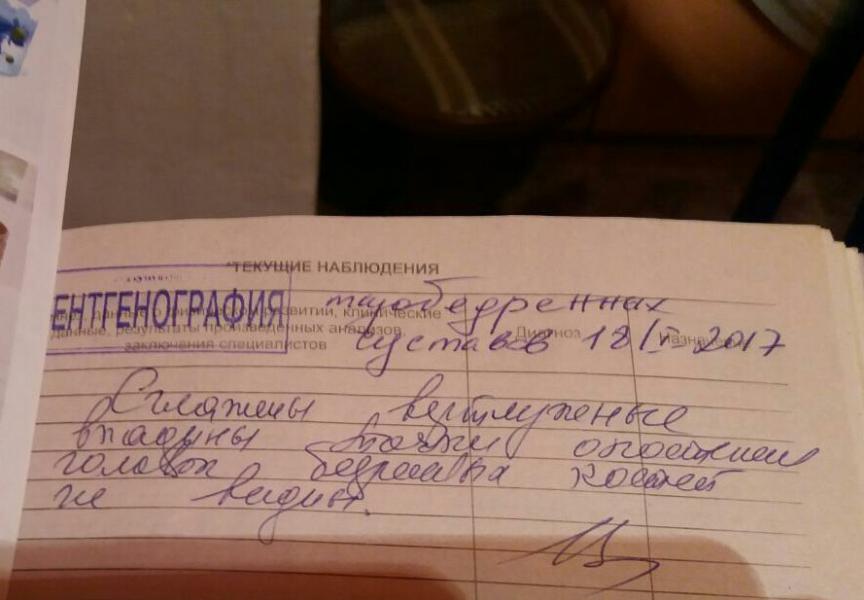 ТЕКУЩИЕ НАБЛЮДЕНИЯ
ЕНТГЕНОГРАФИЯ тазобедренных
развитии, клинические
данные, результаты произведенных анализов, Диагноз
заключения специалистов
суставов 18/I-2017
Сглажены вертлужные
впадины точки окостенения
головок бедренных костей
не видны.